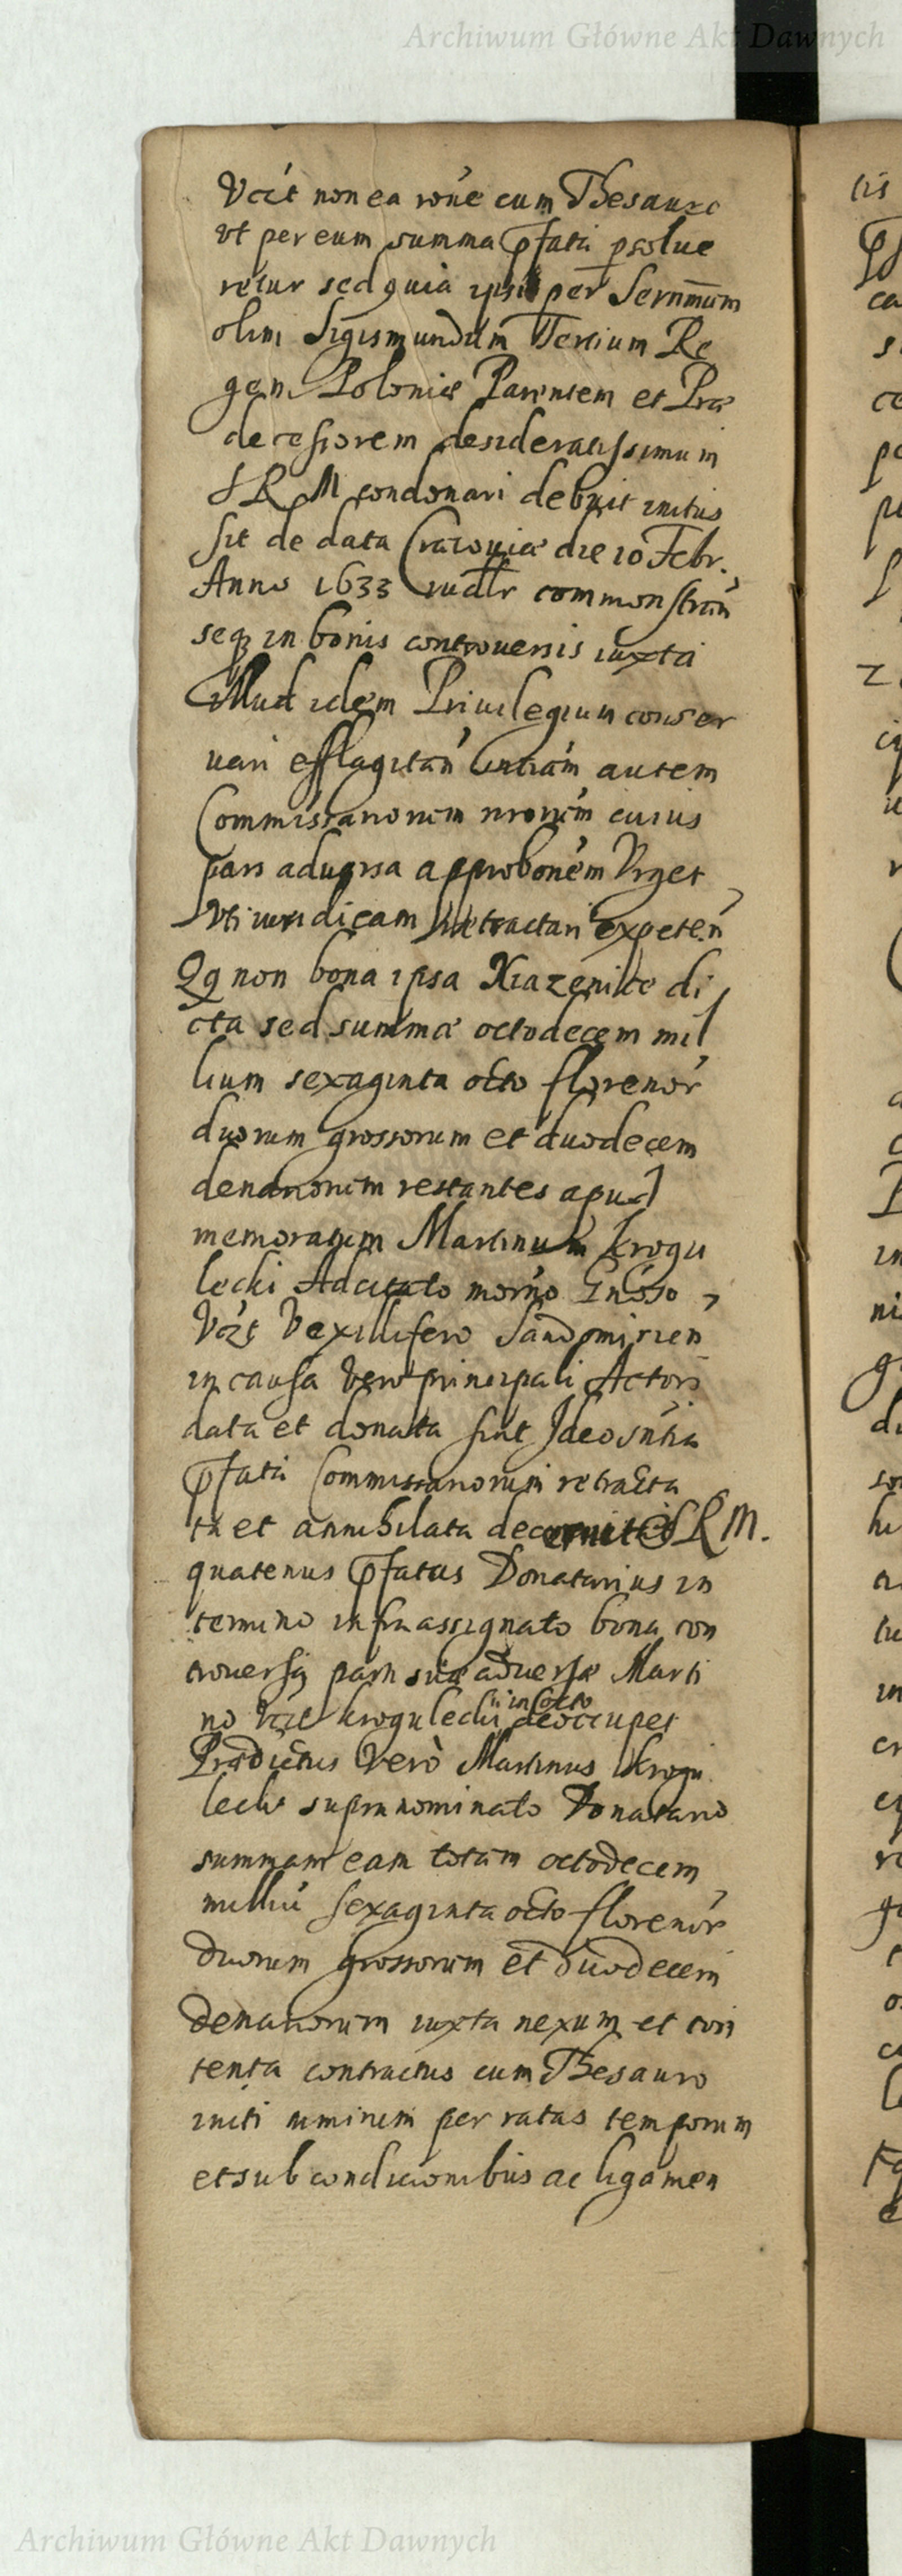 Archiwum Główne Akt Dawnych
non ea rõne cum Thesauro
vt per eum summa pfata psolue
retur sed quia ipsi per Sernmum
olim Sigismundum Tertium Re
gem Poloniæ Parentem et Præ
decessorem desideratissimum
S R M condonari debuit initus
sit de data Cracouiæ die 10 Febr.
Anno 1633 commonstran
seq in bonis controuersis iuxta
illud idem Priuilegium conser
uari efflagitan autem
Commissariorum nrorum cuius
pars aduersa approbonem Vrget
Vti iuridicam retractari expeten
Qq non bona ipsa Xiazenice di
cta sed summæ octodecem mil
lium sexaginta octo florenor
duorum grossorum et duodecem
denariorum restantes apud
memoratum Martinum Krogu
lecki Adcitato Gnoso
Vexillifero Sandomirien
in causa vero principali Actori
data et donata sint Ideo sntia
pfata Commissariorum retracta
ta et annihilata S R M.
quatenus pfatus Donatarius in
termino infra assignato bona con
trouersa parti suæ aduersæ Marti
no Krogulecki deoccupet
in Octo
Prædictus Verò Martinus Krogu
lecki supra nominato Donatario
summam eam totam octodecem
milliu sexaginta octo florenor
duorum grossorum et duodecem
denariorum iuxta nexum et con
tenta contractus cum Thesauro
initi per ratas temporum
et sub condicionibus ac ligamen
Archiwum Główne Akt Dawnych